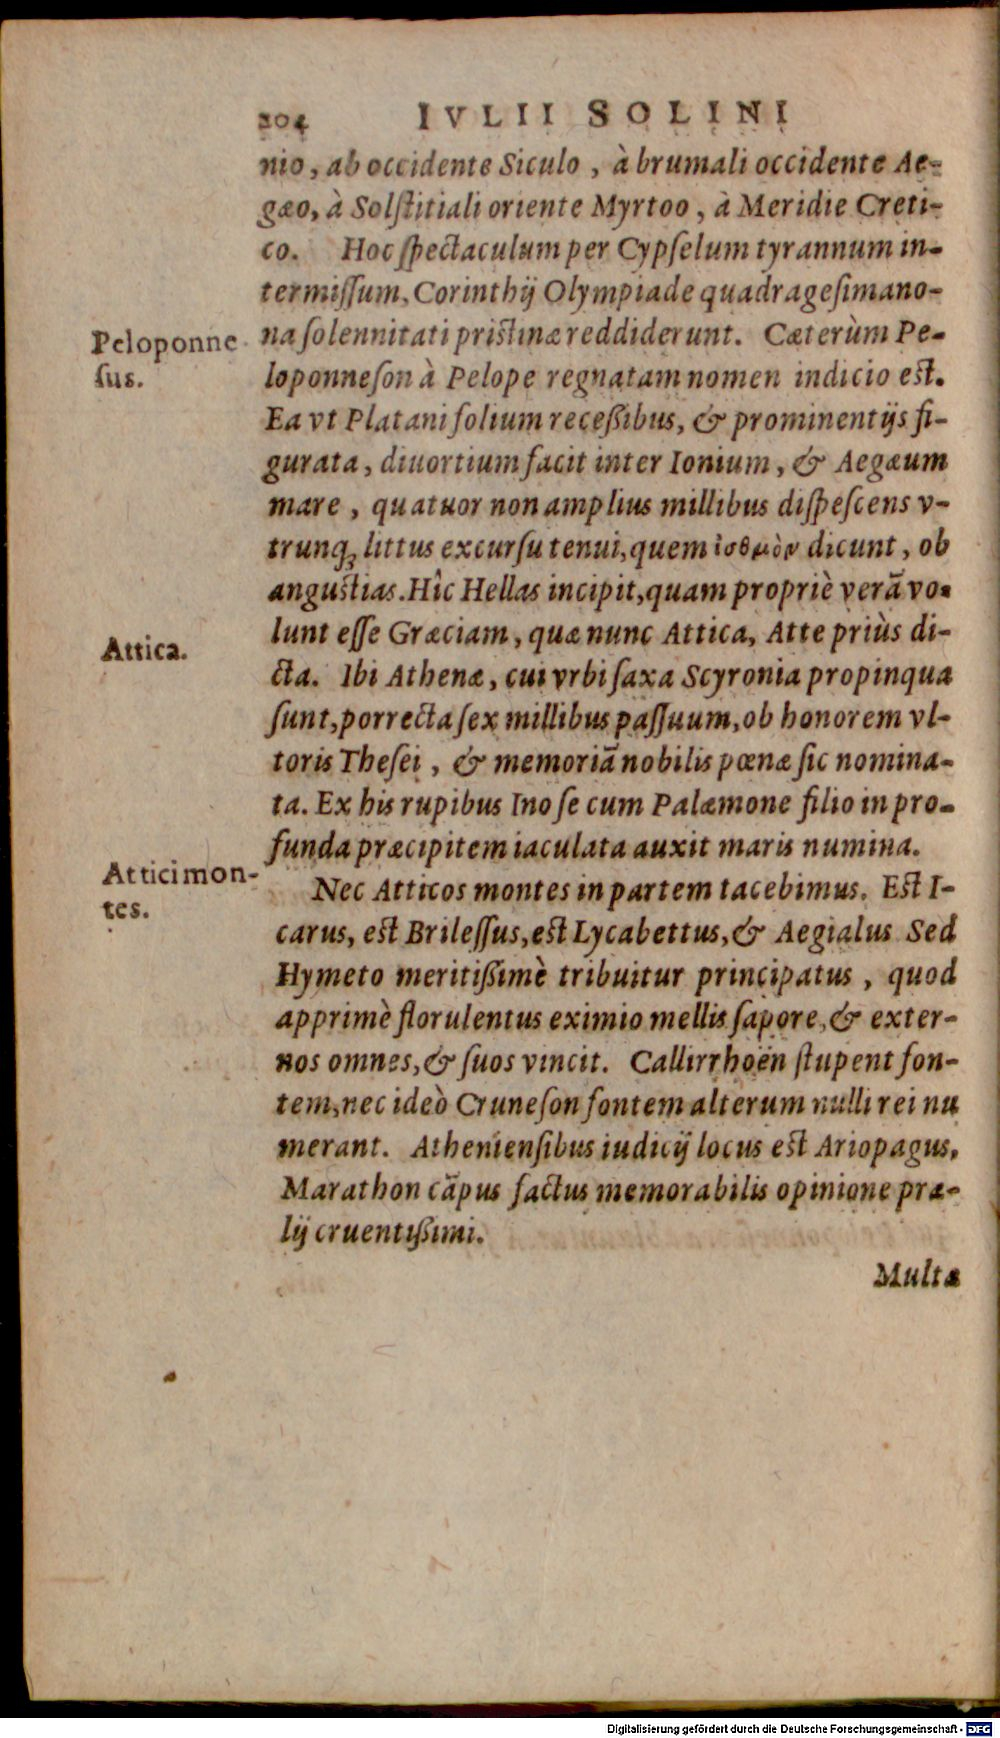 204 IVLII SOLINI
nio, ab occidente Siculo, à brumali occidente Ae-
gæo, à Solſtitiali oriente Myrtoo, à Meridie Creti-
co. Hoc ſpectaculum per Cypſelum tyrannum in-
termiſſum, Corinthij Olympiade quadrageſimano-
na ſolennitati priſtinæ reddiderunt. Cæterùm Pe-
Peloponne
ſus.
loponneſon à Pelope regnatam nomen indicio eſt.
Ea vt Platani folium receßibus, & prominentijs fi-
gurata, diuortium facit inter Ionium, & Aegæum
mare, quatuor non amplius millibus diſpeſcens v-
trunq; littus excurſu tenui, quem ἰσθμὸν dicunt, ob
anguſtias. Hîc Hellas incipit, quam propriè verā vo-
lunt eſſe Græciam, quæ nunc Attica, Atte priùs di-
Attica.
cta. Ibi Athenæ, cui vrbi ſaxa Scyronia propinqua
ſunt, porrecta ſex millibus paſſuum, ob honorem vl-
toris Theſei, & memoriā nobilis pœnæ ſic nomina-
ta. Ex his rupibus Ino ſe cum Palæmone filio in pro-
funda præcipitem iaculata auxit maris numina.
Attici mon-
tes.
Nec Atticos montes in partem tacebimus. Eſt I-
carus, eſt Brileſſus, eſt Lycabettus, & Aegialus Sed
Hymeto meritißimè tribuitur principatus, quod
apprimè florulentus eximio mellis ſapore, & exter-
nos omnes, & ſuos vincit. Callirrhoën ſtupent fon-
tem, nec ideò Cruneſon fontem alterum nulli rei nu
merant. Athenienſibus iudicij locus eſt Ariopagus,
Marathon cāpus factus memorabilis opinione præ-
lij cruentißimi.
Multæ
Digitalisierung gefördert durch die Deutsche Forschungsgemeinschaft - DFG